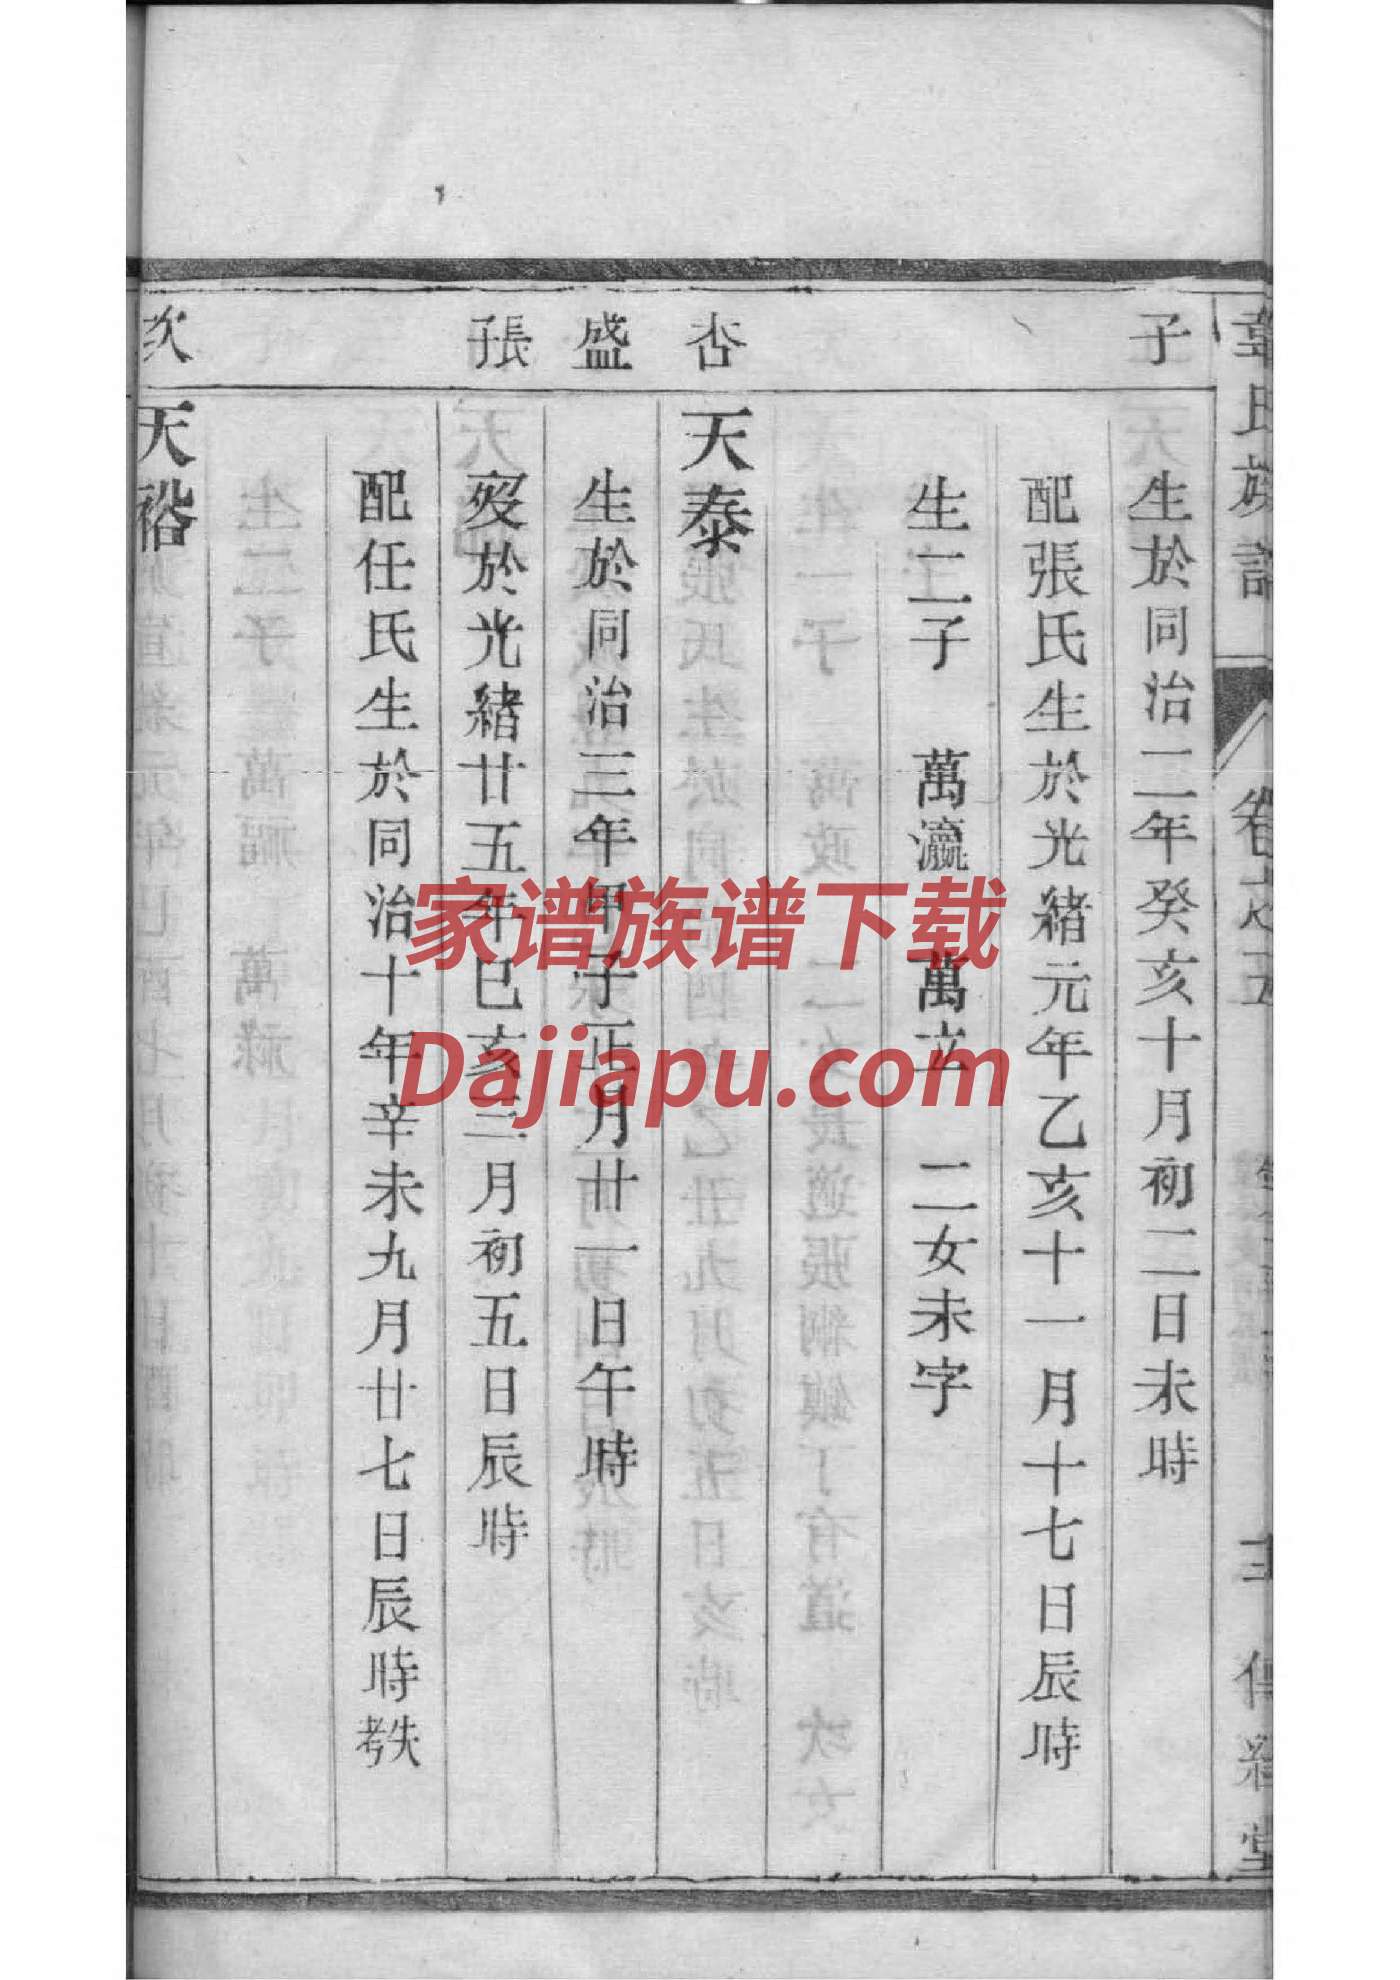 韋氏族譜 卷之五 傳經堂
子
生於同治二年癸亥十月初二日未時
配張氏生於光緒元年乙亥十一月十七日辰時
生二子 萬瀛 萬立 二女未字
杏
天泰
盛
生於同治三年甲子正月廿一日午時
張子
歿於光緒廿五年巳亥三月初五日辰時
配任氏生於同治十年辛未九月廿七日辰時考失
次
天裕
家谱族谱下载
Dajiapu.com